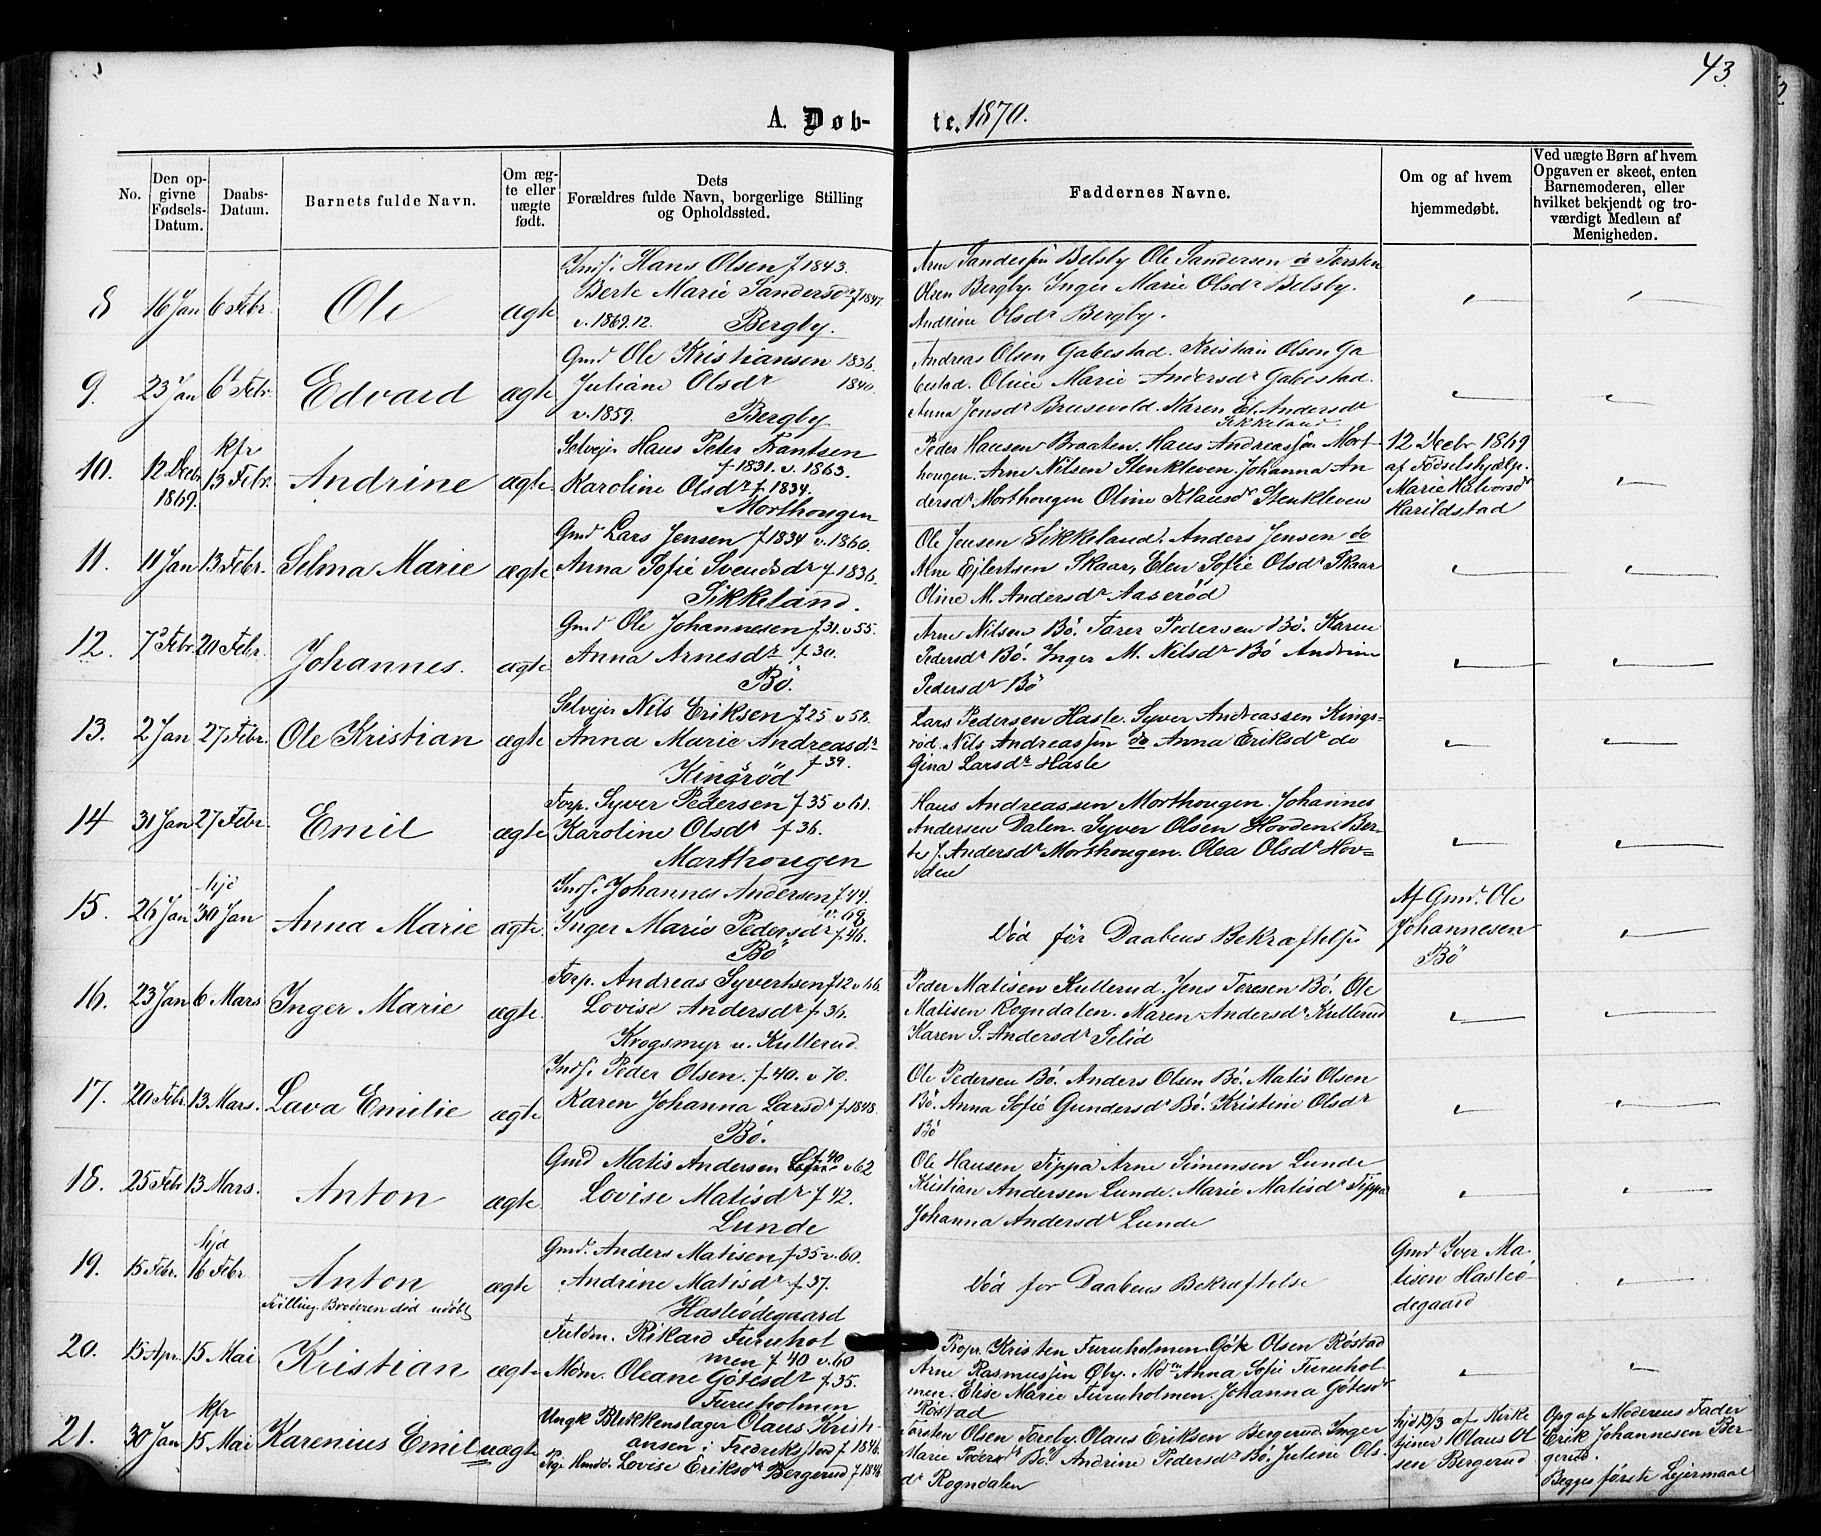 43.
A. Døb-
te. 1870.
No.
Den op-
givne
Fødsels-
Datum.
Daabs-
Datum.
Barnets fulde Navn.
Om æg-
te eller
uægte
født.
Dets
Forældres fulde Navn, borgerlige Stilling
og Opholdssted.
Faddernes Navne.
Om og af hvem
hjemmedøbt.
Ved uægte Børn af hvem
Opgaven er skeet, enten
Barnemoderen, eller
hvilket bekjendt og tro-
værdigt Medlem af
Menigheden.
8 16 Jan 6 Febr. Ole ægte
Inds. Hans Olsen f 1843.
Berte Marie Sandersdr f 1847.
v. 1869.12. Bergby.
Arne Sandersen Belsby Ole Sandersen do Torsten
Olsen Bergby. Inger Marie Olsdr Belsby.
Andrine Olsdr Bergby.
9. 23 Jan 6 Febr. Edvard ægte
Gmd Ole Kristiansen 1836.
Juliane Olsdr 1840.
v. 1859. Bergby
Andreas Olsen Gabestad. Kristian Olsen Ga
bestad. Oline Marie Andersdr Gabestad.
Anna Jensdr Brusevold. Karen El. Andersdr
Sikkeland.
10. 12 Decbr 1869. kfr 13 Febr. Andrine ægte
Selvejer Hans Peter Frantsen
f 1831. v. 1863.
Karoline Olsdr f. 1834.
Morthougen
Peder Hansen Braaten. Hans Andreassen Mort-
hougen. Arne Nilsen Stenkleven. Johanna An
dersdr Morthougen Oline Klausdr Stenkleven
12 Decbr 1869
af Fødselshjælp.
Marie Halvorsdr
Karildstad
11. 11 Jan 13 Febr. Selma Marie ægte
Gmd Lars Jensen f 1834 v. 1860.
Anna Sofie Svendsdr f 1836.
Sikkeland.
Ole Jensen Sikkeland. Anders Jensen do
Arne Ejlertsen Skaar, Elen Sofie Olsdr Skaar
Oline M. Andersdr Aaserød
12. 7 Febr. 20 Febr. Johannes. ægte
Gmd Ole Johannesen f. 31. v 55.
Anna Arnesdr f 30.
Bö.
Arne Nilsen Bö. Tarer Pedersen Bö. Karen
Pedersdr Bö. Inger M. Nilsdr Bö Andrine
Pedersdr Bö
13. 2 Jan 27 Febr. Ole Kristian ægte
Selvejer Nils Eriksen f. 25 v 58.
Anna Marie Andreasdr
f 39.
Kingsrød
Lars Pedersen Hasle. Syver Andreassen Kings-
rød. Nils Andreassen do Anna Eriksdr do
Gina Larsdr Hasle
14 31 Jan 27 Febr. Emil ægte
Forp. Syver Pedersen f. 35 v 61.
Karoline Olsdr f 36.
Morthougen
Hans Andreassen Morthougen. Johannes
Andersen Dalen. Syver Olsen Hovden. Ber-
te J. Andersdr Morthougen. Olea Olsdr Hov-
den
15. 26 Jan hjd 30 Jan Anna Marie ægte.
Inds. Johannes Andersen f. 44.
v. 69
Inger Marie Pedersdr f. 46.
Bö
Död før Daabens Bekræftelse
Af Gmd. Ole
Johannesen
Bö
16. 23 Jan 6 Mars Inger Marie ægte.
Forp. Andreas Syvertsen f 12 v 66.
Lovise Andersdr f 36.
Krogsmyr u. Kullerud.
Peder Matisen Kullerud. Jens Toresen Bö. Ole
Matisen Rogndalen. Maren Andersdr Kullerud
Karen S. Andersdr Selid
17. 20 Febr. 13 Mars. Lava Emilie ægte.
Inds. Peder Olsen. f 40. v 70.
Karen Johanna Larsdr f 1848.
Bö.
Ole Pedersen Bö. Anders Olsen Bö. Matis Olsen
Bö. Anna Sofie Gundersdr Bö. Kristine Olsdr
Bö
18. 25 Febr 13 Mars. Anton ægte
Gmd Matis Andersen f 40 v 62
Lovise Matisdr f 42.
Lunde
Ole Hansen Tippa Arne Simensen Lunde
Kristian Andersen Lunde. Marie Matisdr Tippa
Johanna Andersdr Lunde
19. 15 Febr. hjd 16 Febr Anton ægte
Tvilling. Broderen död udöbt
Gmd. Anders Matisen f 35 v. 60.
Andrine Matisdr f. 37.
Hasleödegaard
Död for Daabens Bekræftelse
Gmd Iver Ma
tisen Hasleö-
degaard
20. 15 Apr. 15 Mai Kristian ægte
Fuldm. Rikard Furuhol
men f 40 v. 60
Mdm. Oleane Götesdr f. 35.
Furuholmen
Propr. Kristen Furuholmen. Göte Olsen Röstad
Arne Rasmussen Öby. Mdm Anna Sofie Furuhol
men. Elise Marie Furuholmen. Johanna Götesdr
Röstad
21. 30 Jan kfr 15 Mai Karenius Emil uægte
Ungk Blikkenslager Olaus Kristi-
ansen i Fredrikstad f 1846.
Pige Lovise Eriksdr Bergerud f 1846
Torsten Olsen Toreby. Olaus Eriksen Bergerud. Inger
Marie Pedersdr Bö. Andrine Pedersdr Bö. Juline Ols-
dr Rogndalen
hjd 13/3 af Kirke
tjener Olaus Ol
sen Bergerud
Opg af Moderens Fader
Erik Johannesen Ber
gerud.
Begges første Lejermaal